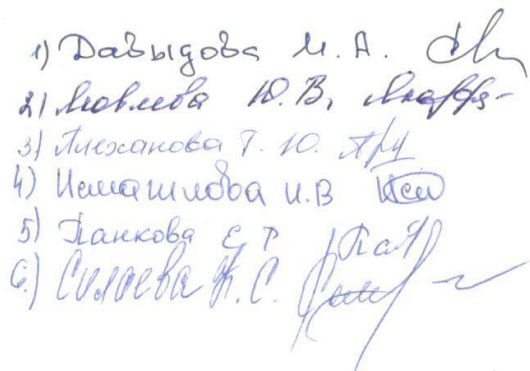 1) Давыдова М. А.
2) Ю. В.
3) Плеханова Т. Ю.
4) Исмаилова И. В
5) Панкова Е Р
6.) Силаева К. С.